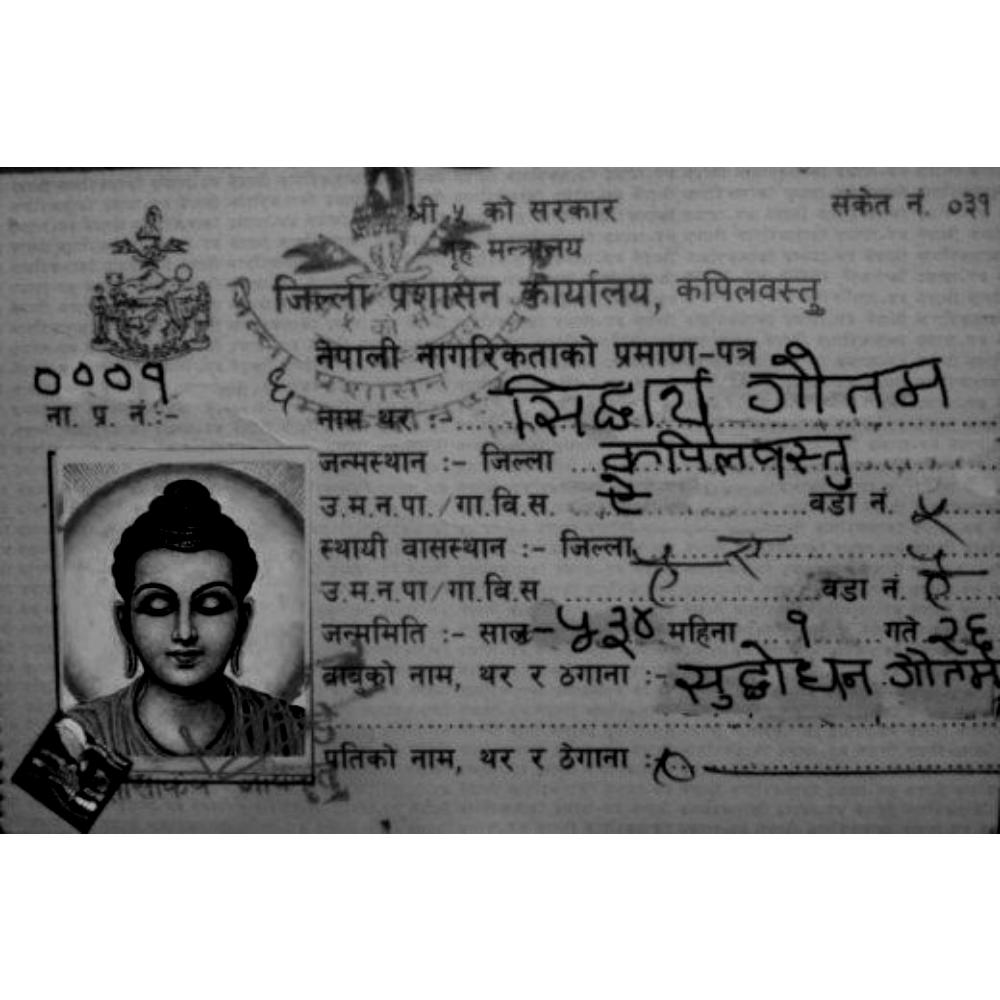 श्री ५ को सरकार
संकेत नं. ०३१
गृह मन्त्रालय
जिल्ला प्रशासन कार्यालय, कपिलवस्तु
नेपाली नागरिकताको प्रमाण-पत्र
०००१
ना. प्र. नं.:-
नाम थर :- सिद्धार्थ गौतम
जन्मस्थान :- जिल्ला कपिलवस्तु
उ.म.न.पा./गा.वि.स. ऐ वडा नं. ५
स्थायी वासस्थान :- जिल्ला
उ.म.न.पा/गा.वि.स वडा नं. ऐ
जन्ममिति :- साल-५३४ महिना १ गते २६
बाबुको नाम, थर र ठेगाना :- सुद्धोधन गौतम
पतिको नाम, थर र ठेगाना :-